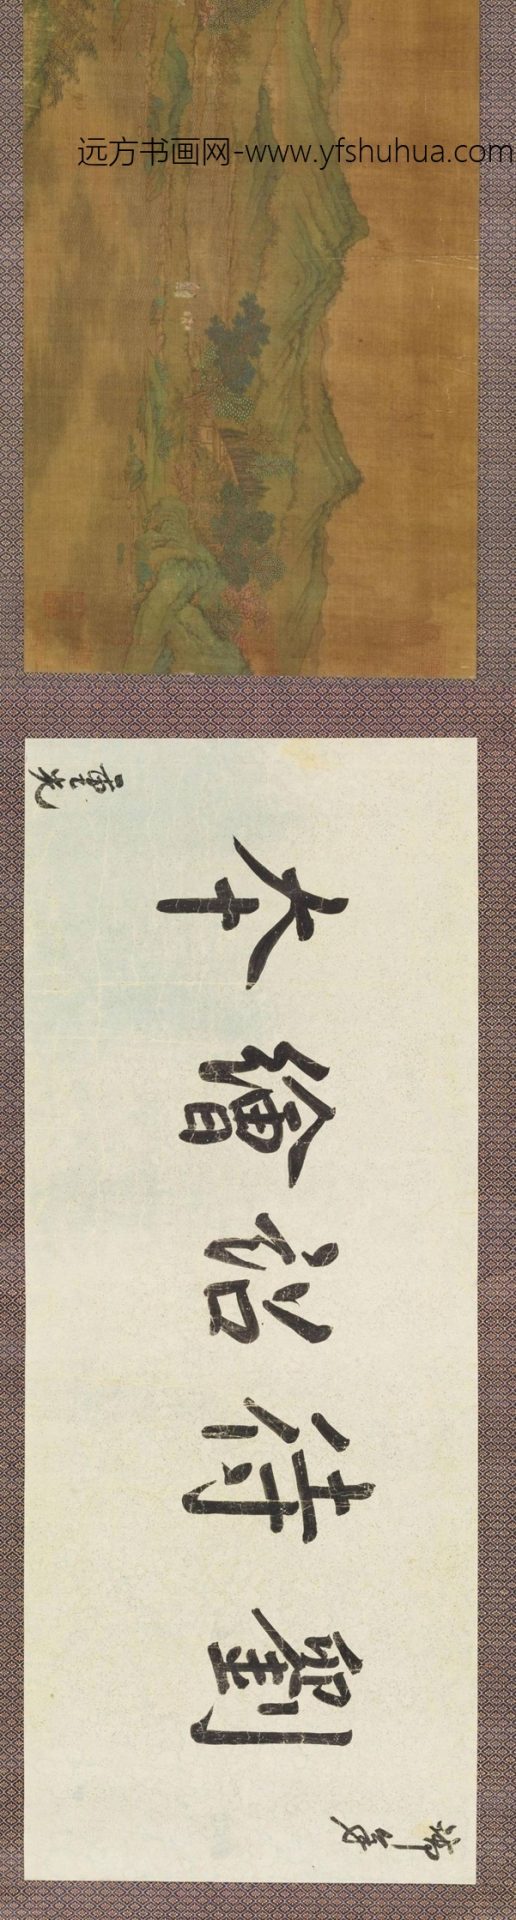 远方书画网-www.yfshuhua.com
劉待詔繪本
重光